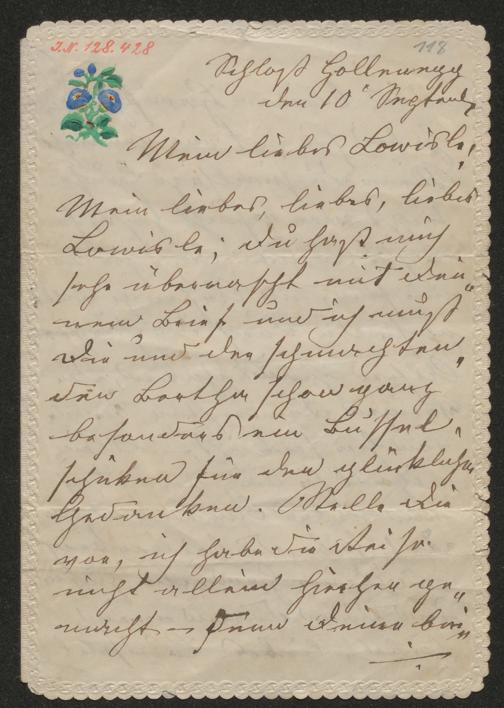 I.N. 128.428
118
Schloß Hollenegg
den 10t September
Mein liebes Lowisle,
Mein liebes, liebes, liebes
Lowisle; du hast mich
sehr überrascht mit dei„
nem Brief und ich muß
dir und der schmachten„
den Bertha schon ganz
besonders ein Bussel
schicken für den glücklichen
Gedanken. Stelle dir
vor, ich habe die Reise
nicht allein hierher ge„
macht – denn deine bei„